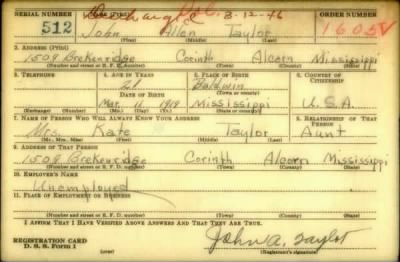 SERIAL NUMBER
1. NAME (PRINT)
ORDER NUMBER
Discharged 3-12-46
512 John Allen Taylor 1605 V
(First) (Middle) (Last)
2. ADDRESS (PRINT)
1509 Brekenridge Corinth Alcorn Mississippi
(Number and street or R. F. D. number) (Town) (County) (State)
3. TELEPHONE 4. AGE IN YEARS 5. PLACE OF BIRTH 6. COUNTRY OF CITIZENSHIP
21 Baldwin
DATE OF BIRTH
Mar. 11 1919 Mississippi U.S.A.
7. NAME OF PERSON WHO WILL ALWAYS KNOW YOUR ADDRESS 8. RELATIONSHIP OF THAT PERSON
Mrs. Kate Taylor Aunt
(Mr., Mrs., Miss) (First) (Middle) (Last)
9. ADDRESS OF THAT PERSON
1509 Brekenridge Corinth Alcorn Mississippi
(Number and street or R. F. D. number) (Town) (County) (State)
10. EMPLOYER'S NAME
Unemployed
11. PLACE OF EMPLOYMENT OR BUSINESS
(Number and street or R. F. D. number) (Town) (County) (State)
I AFFIRM THAT I HAVE VERIFIED ABOVE ANSWERS AND THAT THEY ARE TRUE.
REGISTRATION CARD
D. S. S. Form 1
John A. Taylor
(Registrant's signature)